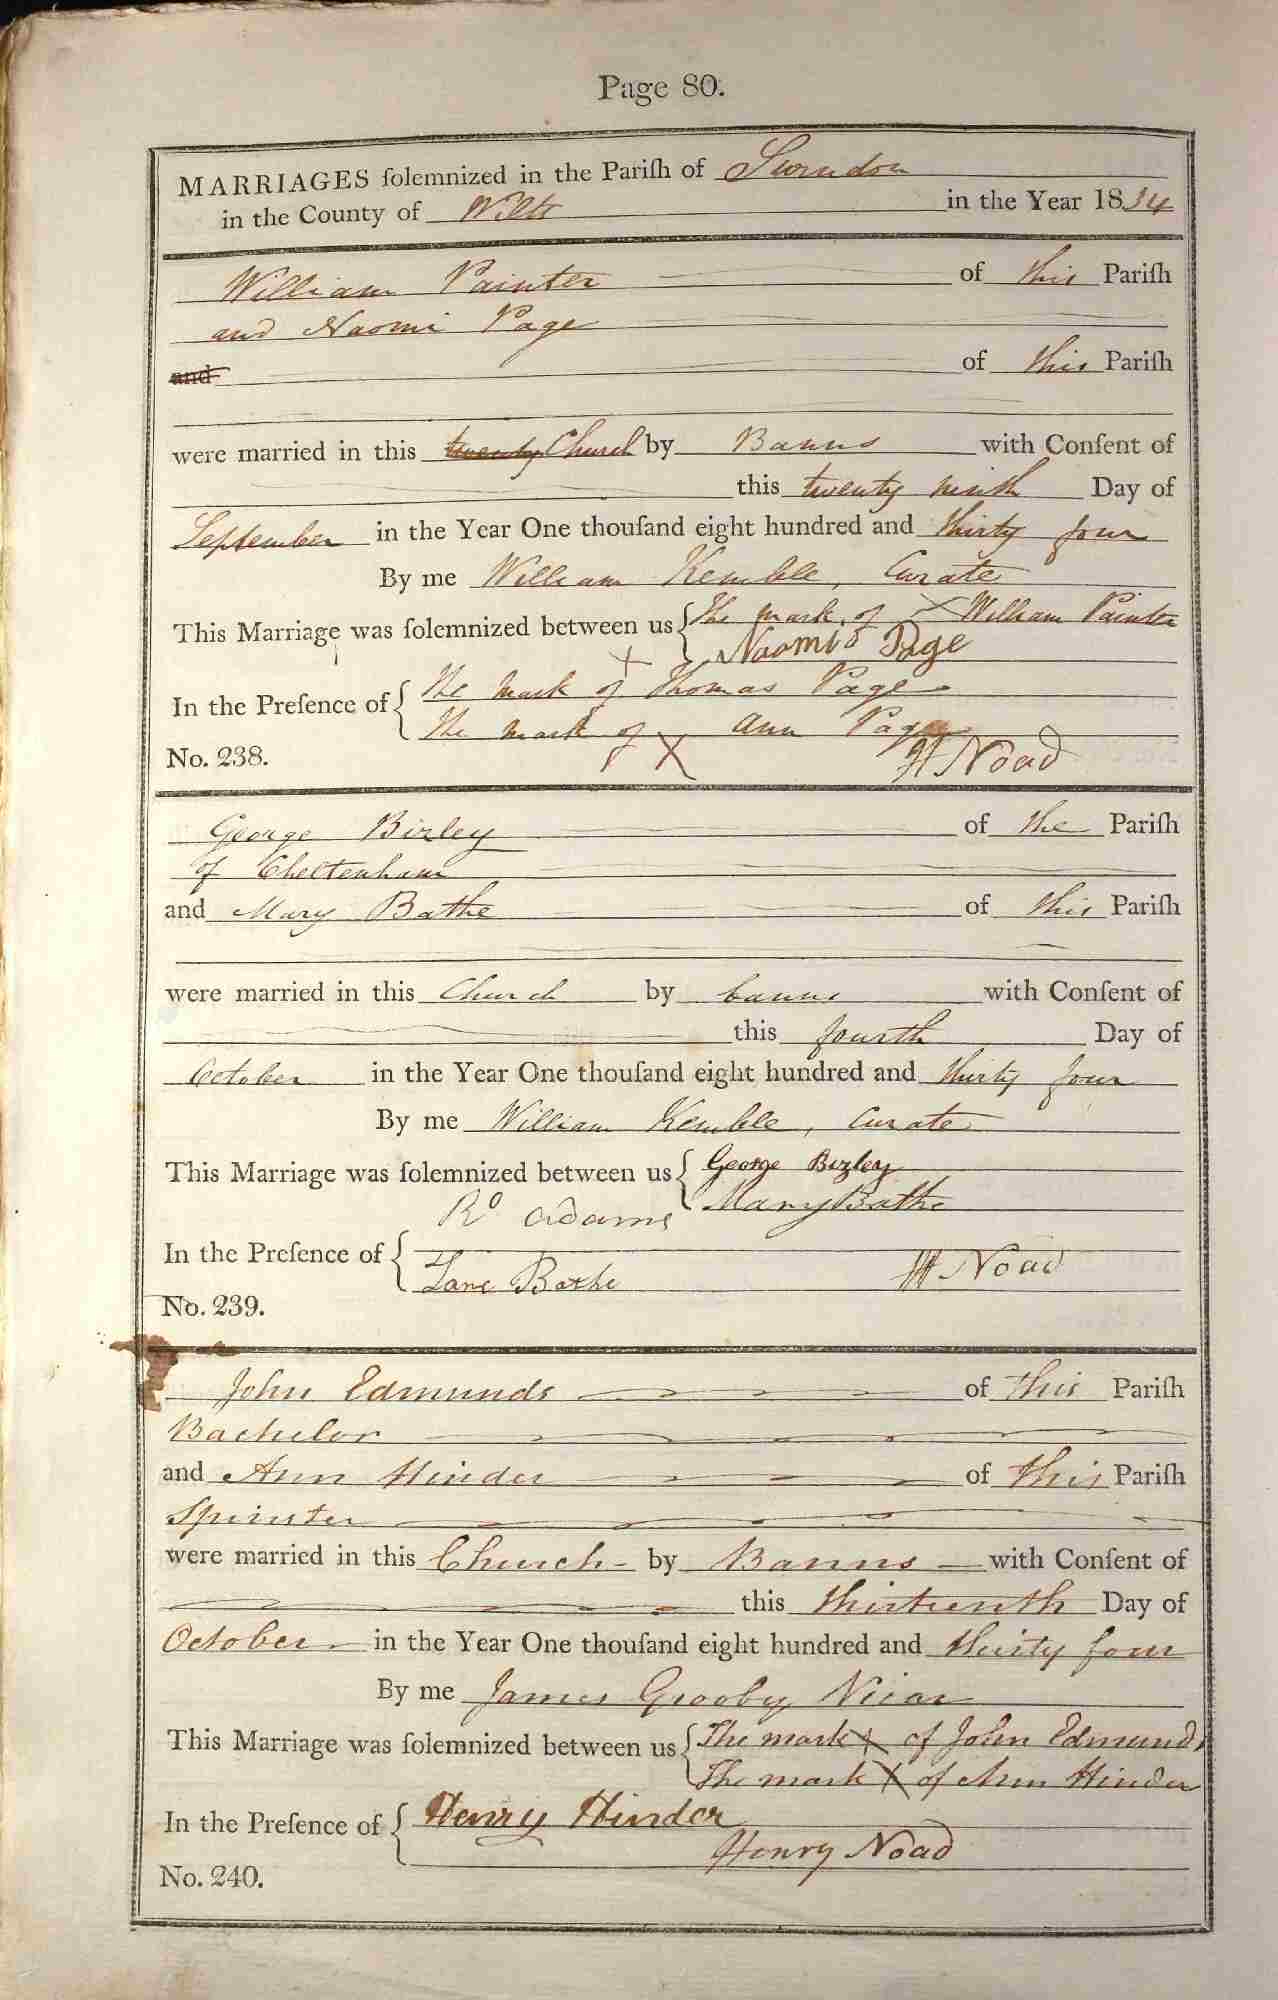 Page 80.
MARRIAGES ſolemnized in the Pariſh of Swindon
in the County of Wilts in the Year 1834
William Painter of this Pariſh
and Naomi Page
and of this Pariſh
were married in this twenty Church by Banns with Conſent of
this twenty ninth Day of
September in the Year One thouſand eight hundred and thirty four
By me William Kemble, Curate
This Marriage was ſolemnized between us The mark of X William Painter
Naomi Page
In the Preſence of The mark of X Thomas Page
The mark of X Ann Page
No. 238. H Noad
George Bizley of the Pariſh
of Cheltenham
and Mary Bathe of this Pariſh
were married in this Church by banns with Conſent of
this fourth Day of
October in the Year One thouſand eight hundred and thirty four
By me William Kemble, Curate
This Marriage was ſolemnized between us George Bizley
Mary Bathe
Ro Adams
In the Preſence of
Jane Bathe H Noad
No. 239.
John Edmunds of this Pariſh
Bachelor
and Ann Hinder of this Pariſh
Spinster
were married in this Church by Banns with Conſent of
this thirteenth Day of
October in the Year One thouſand eight hundred and thirty four
By me James Grooby Vicar
This Marriage was ſolemnized between us The mark X of John Edmunds
The mark X of Ann Hinder
In the Preſence of Henry Hinder
Henry Noad
No. 240.